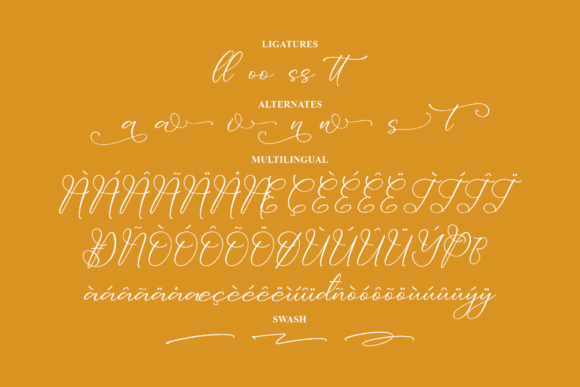 LIGATURES
ll oo ss tt
ALTERNATES
a a o n n s t
MULTILINGUAL
ÀÁÂÃÄÅÆÇÈÉÊËÌÍÎÏ
ÐÑÒÓÔÕÖØÙÚÛÜÝÞß
àáâãäåæçèéêëìíîïðñòóôõöùúûüýÿ
SWASH